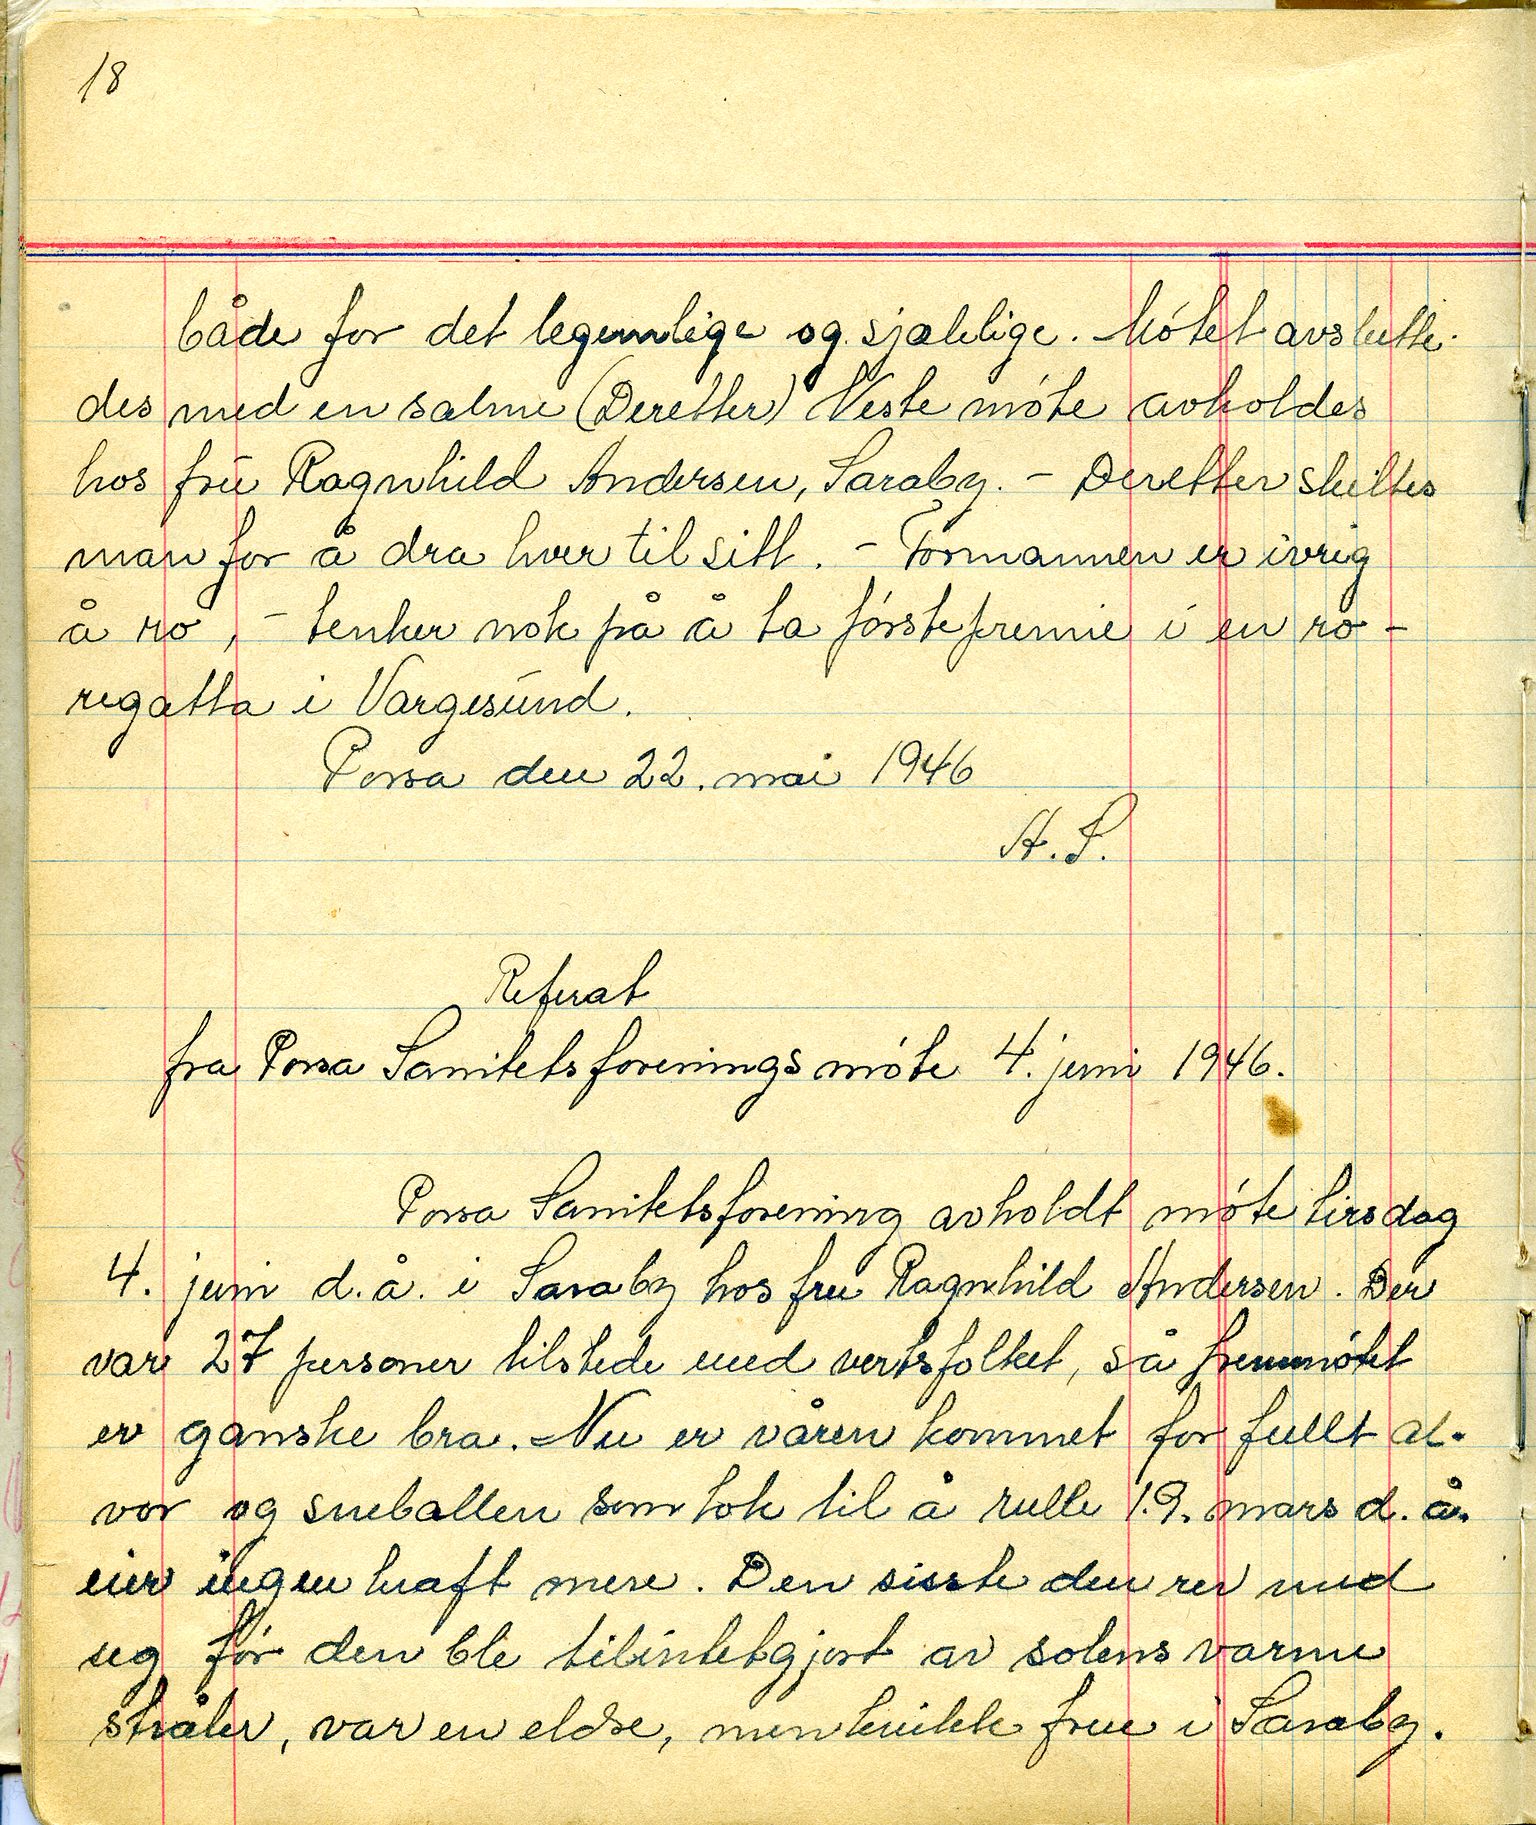 18
både for det legemlige og sjælelige. Møtet avslutte-
des med en salme (Deretter) Neste møte avholdes
hos frü Ragnhild Andersen, Saraby. - Deretter skiltes
man for å dra hver til sitt. - Formannen er ivrig
å ro, - tenker nok på å ta førstepremie i en ro-
regatta i Vargesünd.
Porsa den 22. mai 1946
A. S.
Referat
fra Porsa Sanitetsforenings møte 4. juni 1946.
Porsa Sanitetsforening avholdt møte tirsdag
4. juni d.å. i Saraby hos fru Ragnhild Andersen. Der
var 27 personer tilstede med vertsfolket, så fremmøtet
er ganske bra. Nu er våren kommet for fullt al-
vor og sneballen som tok til å rulle 19. mars d. å.
eier ingen kraft mere. Den sisste den rev med
seg før den ble tilintetgjort av solens varme
stråler, var en eldre, men kvikk frue i Saraby.